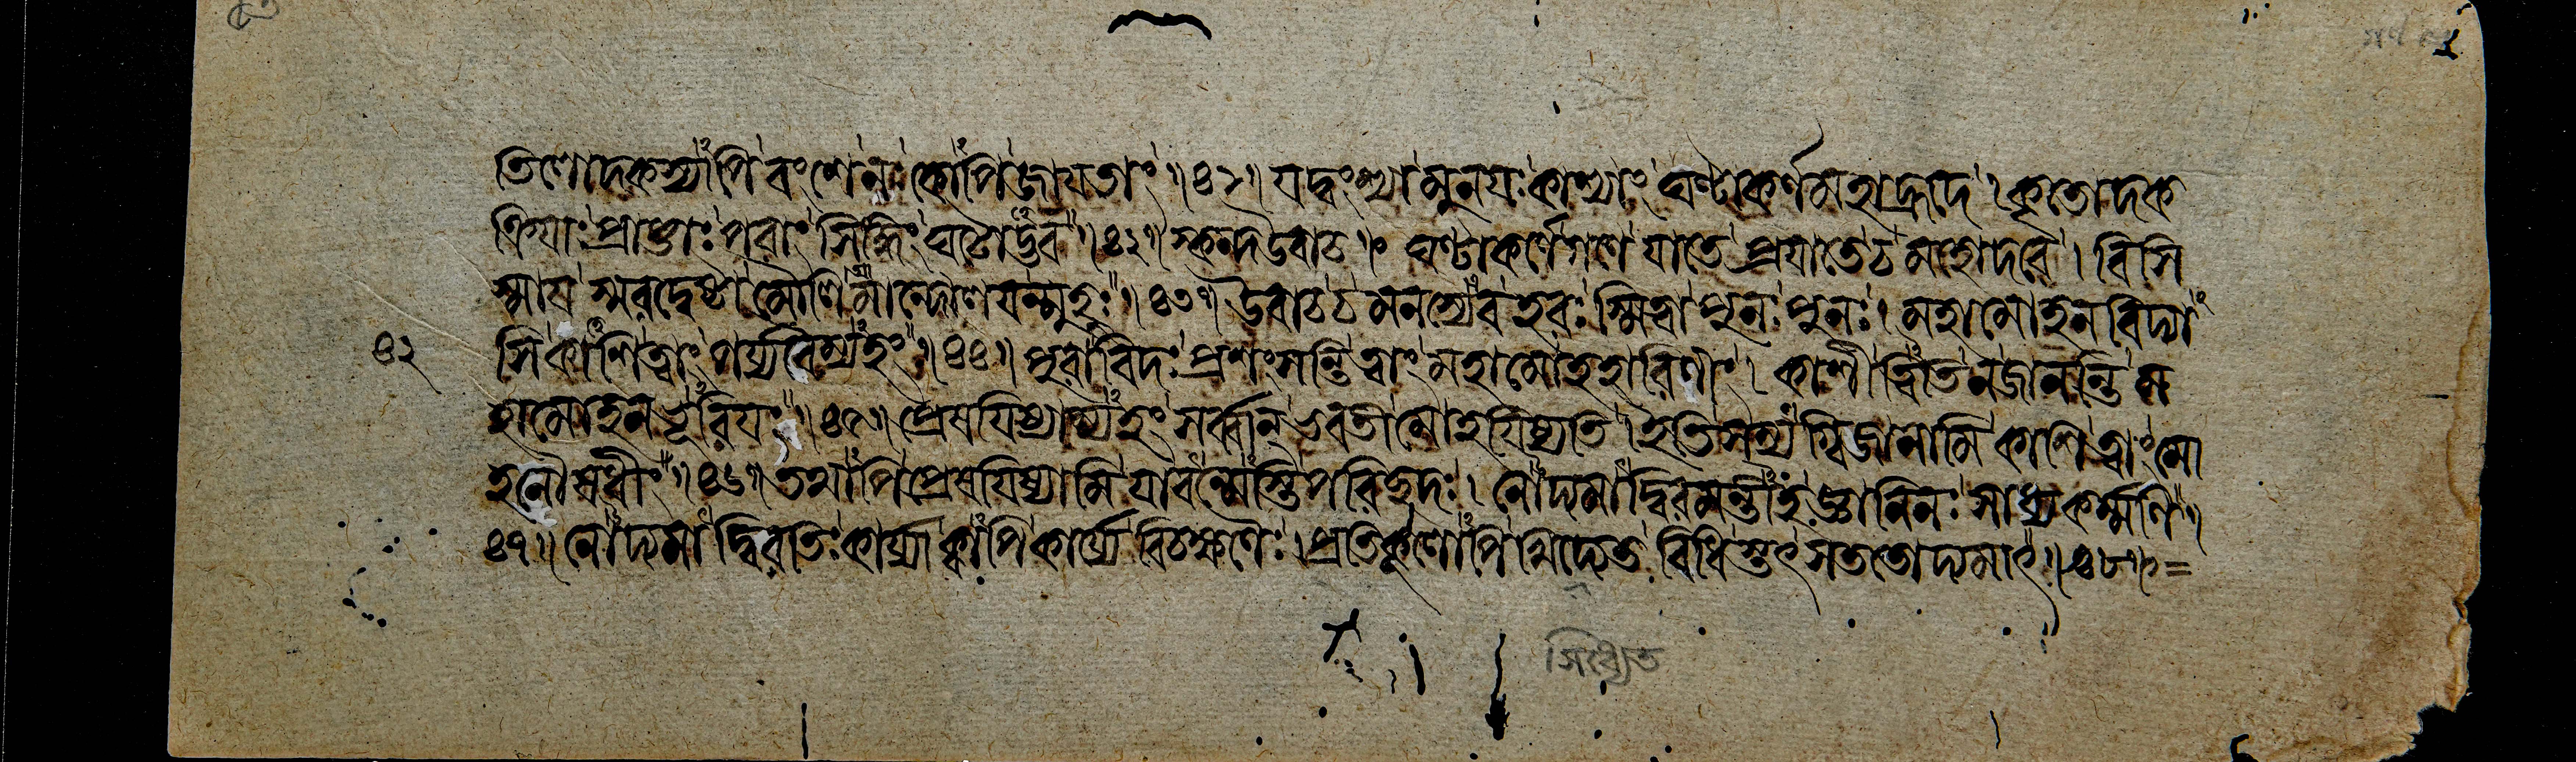 তিলোদকস্যাপি বংশে নঃ কোপি জায়তাং ॥ ৪১ ॥ যদ্বংশ্যা মুনয়ঃ কাশ্যাং ঘণ্টাকর্ণমহাহ্রদে । কৃতোদক
ক্রিয়াঃ প্রাপ্তাঃ পরাং সিদ্ধিং ঘটোদ্ভব ॥ ৪২ ॥ স্কন্দ উবাচ ॥ ঘণ্টাকর্ণে গণে যাতে প্রয়াতে চ মহোদরে । বিসি
স্মায় স্মরদ্বেষ্টা মৌলিমান্দোলয়ন্মুহুঃ ॥ ৪৩ ॥ উবাচ চ মনস্যেব হরঃ স্মিত্বা পুনঃ পুনঃ । মহামোহনবিদ্যা
৪২ সি কাশি ত্বাং পর্য্যবৈম্যহং ॥ ৪৪ ॥ পুরাবিদঃ প্রশংসন্তি ত্বাং মহামোহহারিণীং । কাশীত্বিতি ন জানন্তি ম
হামোহনভূরিয়ং ॥ ৪৫ ॥ প্রেষয়িষ্যাম্যহং সর্ব্বান্ এবতী মোহয়িষ্যতি । ইতি সত্যম্বিজানামি কাশি ত্বাং মো
হনৌষধীং ॥ ৪৬ ॥ তথাপি প্রেষয়িষ্যামি যাবন্মেস্তি পরিচ্ছদঃ । নোদ্যমাদ্বিরমন্তীহ জ্ঞানিনঃ সাধ্যকর্ম্মণি ॥
৪৭ ॥ নোদ্যমাদ্বিরতিঃ কার্য্যা ক্বাপি কার্য্যে বিচক্ষণৈঃ । প্রতিকূলোপি খিদ্যেত বিধিস্তৎ সততোদ্যমাৎ ॥ ৪৮ ॥ =